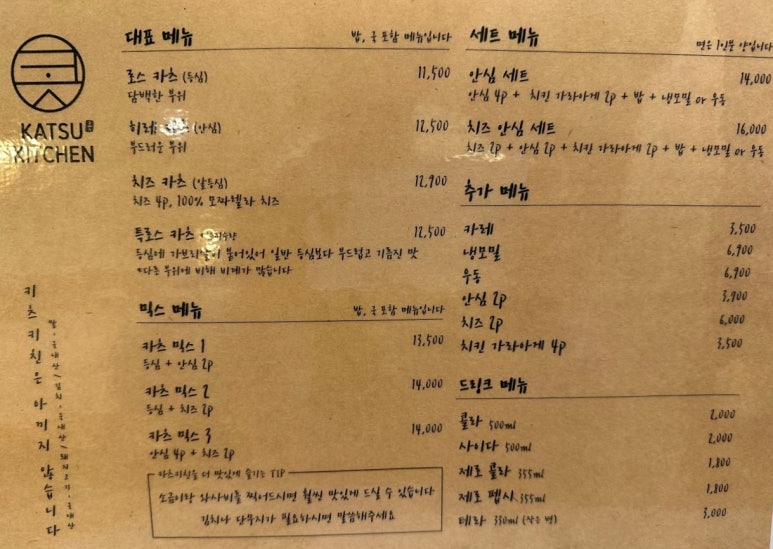 KATSU
KITCHEN
카츠키친은 아끼지 않습니다
대표 메뉴
밥, 국 포함 메뉴입니다
로스 카츠 (등심) 11,500
담백한 부위
히레 (안심) 12,500
부드러운 부위
치즈 카츠 (알등심) 12,900
치즈 4p, 100% 모짜렐라 치즈
특로스 카츠 12,500
등심에 가브리살이 붙어있어 일반 등심보다 부드럽고 기름진 맛
*다른 부위에 비해 비계가 많습니다
믹스 메뉴
밥, 국 포함 메뉴입니다
카츠 믹스 1 13,500
등심 + 안심 2p
카츠 믹스 2 14,000
등심 + 치즈 2p
카츠 믹스 3 14,000
안심 4p + 치즈 2p
카츠키친을 더 맛있게 즐기는 TIP
소금이랑 와사비를 찍어드시면 훨씬 맛있게 드실 수 있습니다
김치나 단무지가 필요하시면 말씀해주세요
세트 메뉴
면은 1인분 양입니다
안심 세트 14,000
안심 4p + 치킨 가라아게 2p + 밥 + 냉모밀 or 우동
치즈 안심 세트 16,000
치즈 2p + 안심 2p + 치킨 가라아게 2p + 밥 + 냉모밀 or 우동
추가 메뉴
카레 3,500
냉모밀 6,900
우동 6,900
안심 2p 3,900
치즈 2p 6,000
치킨 가라아게 4p 3,500
드링크 메뉴
콜라 500ml 2,000
사이다 500ml 2,000
제로 콜라 355ml 1,800
제로 펩시 355ml 1,800
테라 330ml (작은 병) 3,000